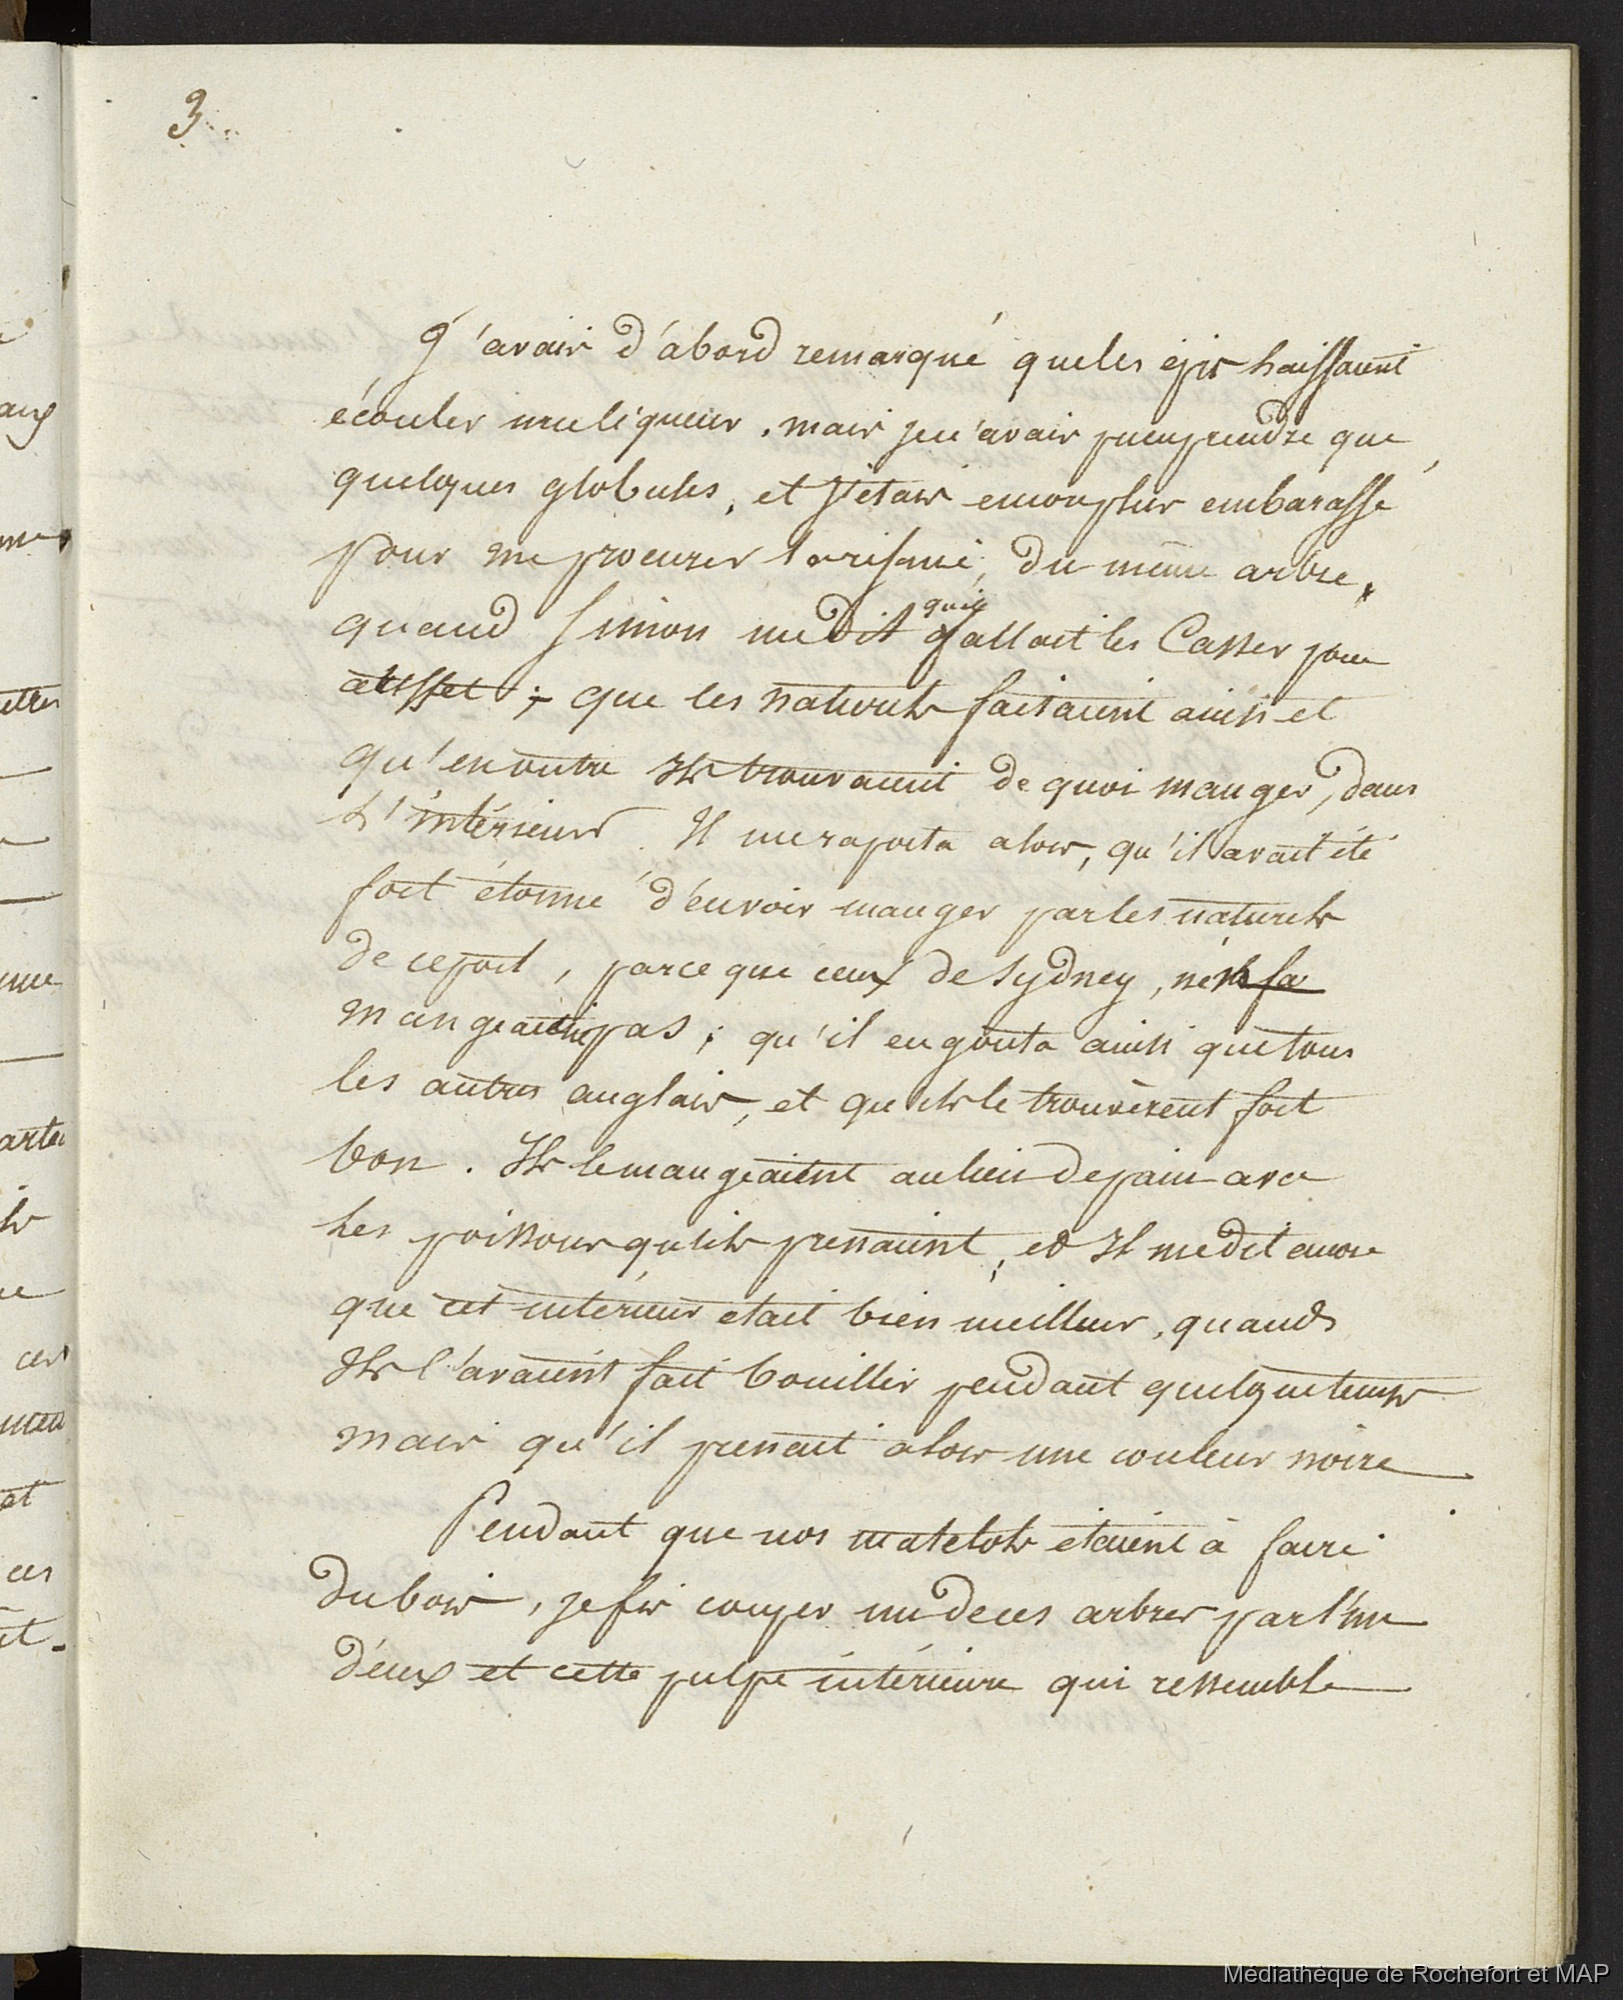 3
J'avais d'abord remarqué que les épis laissaient
écouler une liqueur, mais je n'avais pu en prendre que
quelques globules, et j'étais encor plus embarassé
pour me procurer la résine, du même arbre,
quand Simon me dit qu'il fallait les Casser pour
à l'effet ; que les naturels faisaient ainsi et
qu'en outre Ils trouvaient de quoi manger, dans
L'intérieur. Il me raporta alors, qu'il avait été
fort étonné d'en voir manger par les naturels
de ce port, parce que ceux de Sydney, n'en
mangeaient pas ; qu'il en goûta ainsi que tous
les autres anglais, et qu'ils le trouvèrent fort
bon. Ils le mangeaient au lieu de pain avec
les poissons qu'ils prenaient, et Il me dit encore
que cet intérieur était bien meilleur, quand
Ils l'avaient fait bouillir pendant quelque temps
mais qu'il prenait alors une couleur noire
Pendant que nos matelots étaient à faire
du bois, je fis couper un de ces arbres par l'un
d'eux et cette pulpe intérieure qui ressemble
Médiathèque de Rochefort et MAP